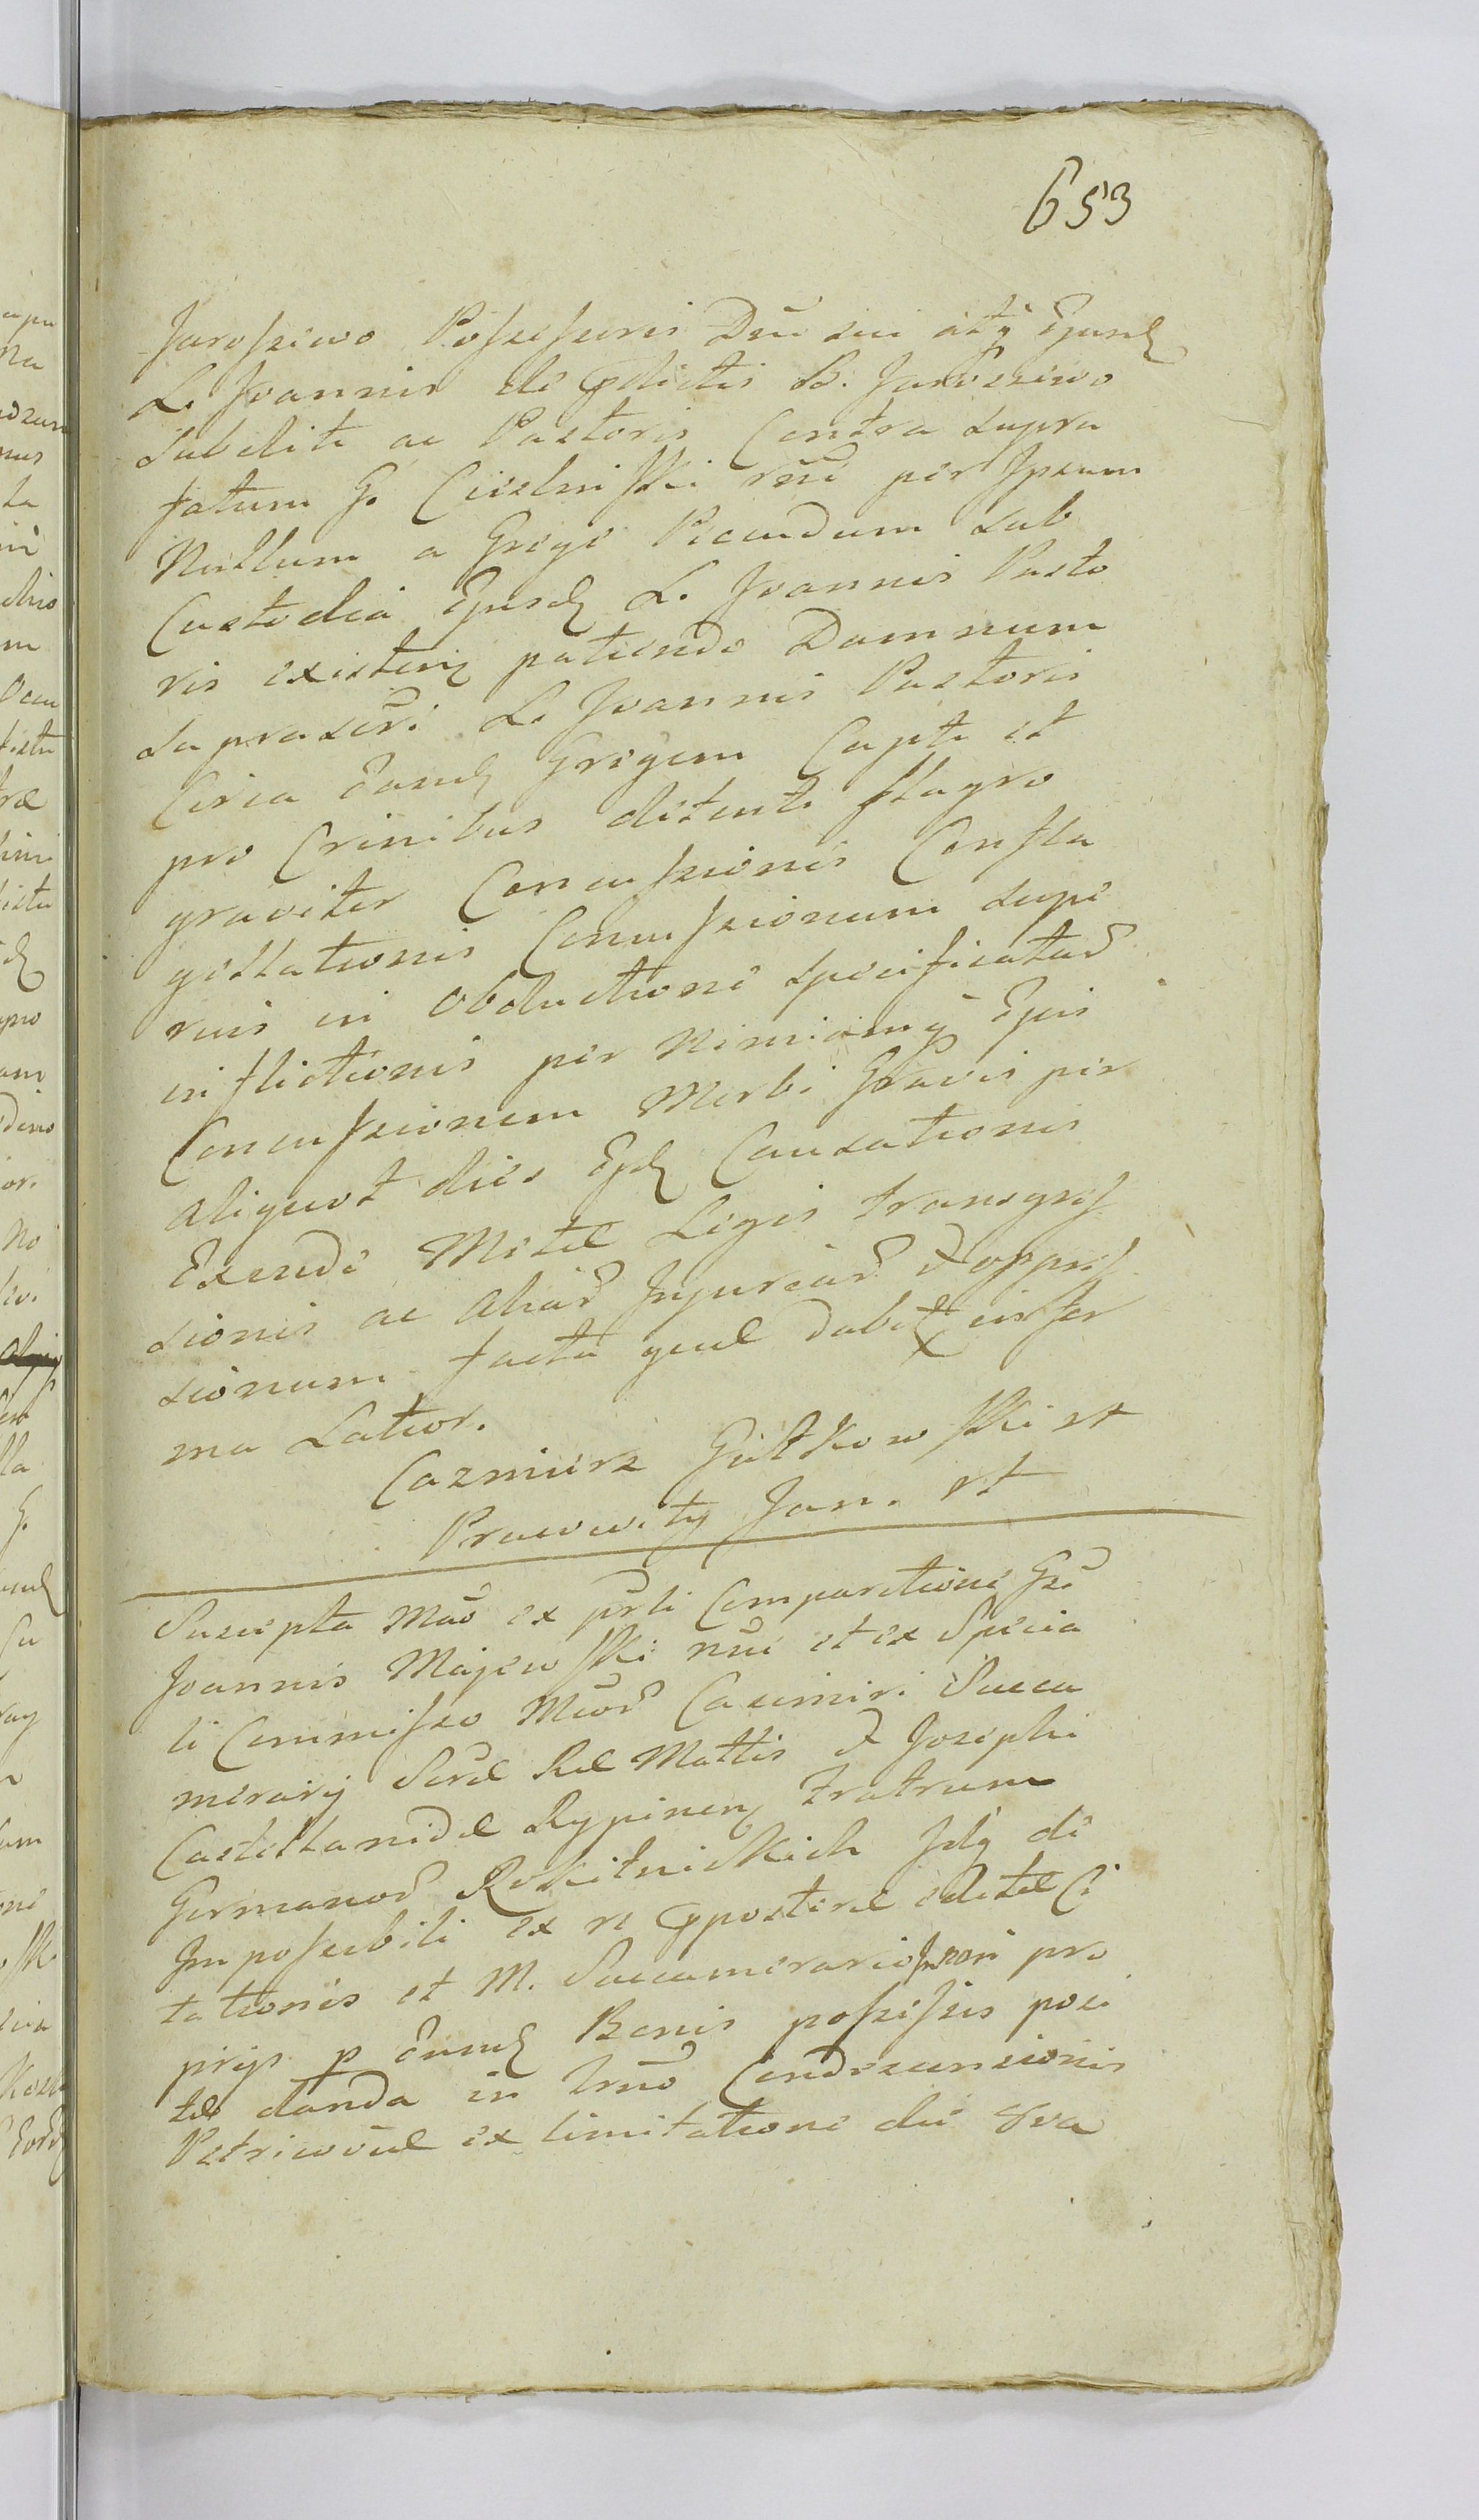 653
Jaroszewo Possessoris Dni sui atq Ejusd
L. Joannis de pdictis B. Jaroszewo
Subditi ac Pastoris Contra supra
fatum G. Cieelmiski rne per Ipsum
Nullum a Grege Pecudum sub
Custodia Ejusd L. Joannis Pasto
ris existen patiendo Damnum
suprascri L. Joannis Pastoris
Circa Eund Gregem Capti et
pro Crinibus detenti flagro
graviter Concussionis Confla
gellationis Concussionum supe
rius in Obductione specificatar
inflictionis per Nimiamq Ejus
Concussionem Morbi Gravis per
aliquot dies Ejd Causationis
Exinde Metae Legis transgres
sionis ac aliar Injuriar et oppres
sionum facta qual dabit in for
ma Latior.
Cazmierz Gutkowski rt
Prawowity Jan. rt
Suscepta Mao ex prli Comparitione Gsi
Joannis Majewski nne et ex Specia
li Commisso Mcor Casimiri Succa
merarij Serae Rae Mattis et Josephi
Castellanidae Rypinen Fratrum
Germanor Rokitnickich Jdq de
Impossibili ex re ppostere editae Ci
tationis et M. Succamerario pro
prijs p Eund Bonis possessis posi
tae danda in Trno Condescensionis
Petricoviae ex limitatione die 8va